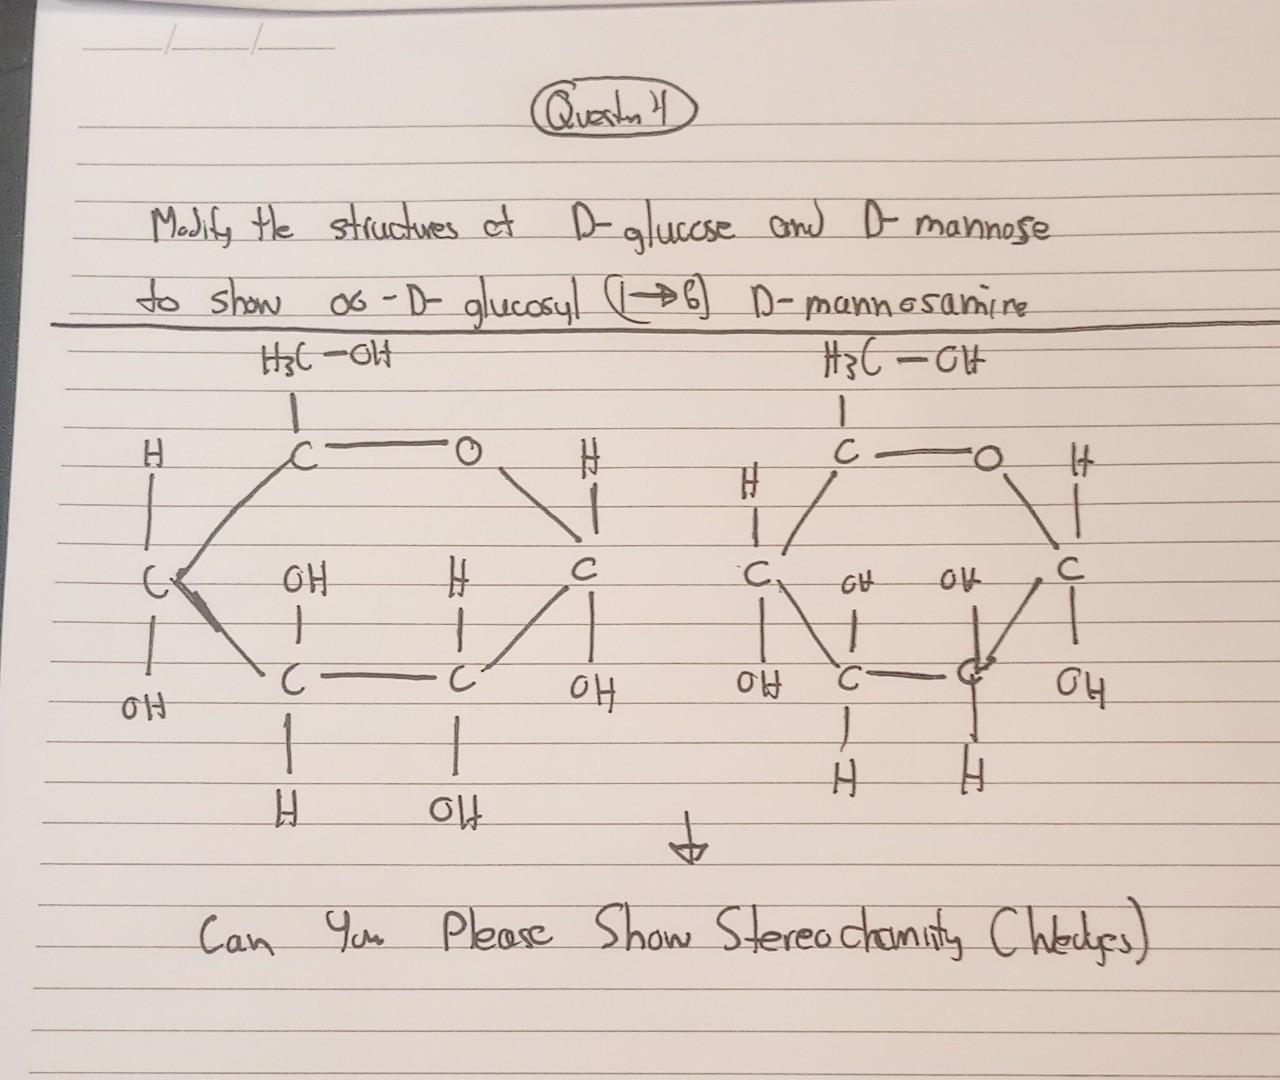 Question 4
Modify the structures of D-glucose and D-mannose
to show α-D-glucosyl (1→6) D-mannosamine
H3C-OH H3C-OH
C O C O
H H H H
C OH H C C OH OH C
OH C C OH OH C C OH
H OH H H
↓
Can You Please Show Stereochemisity (Wedges)